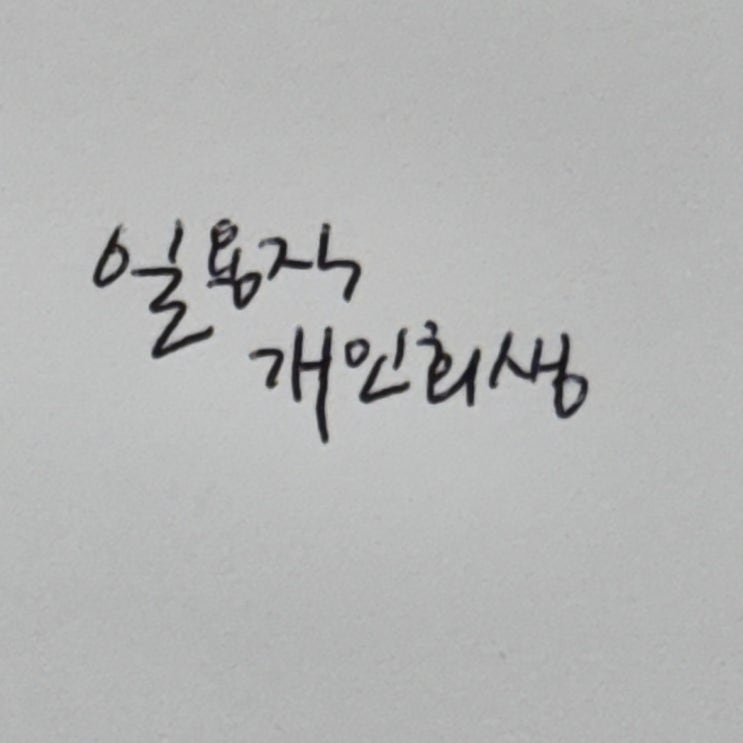 일용직
개인회생